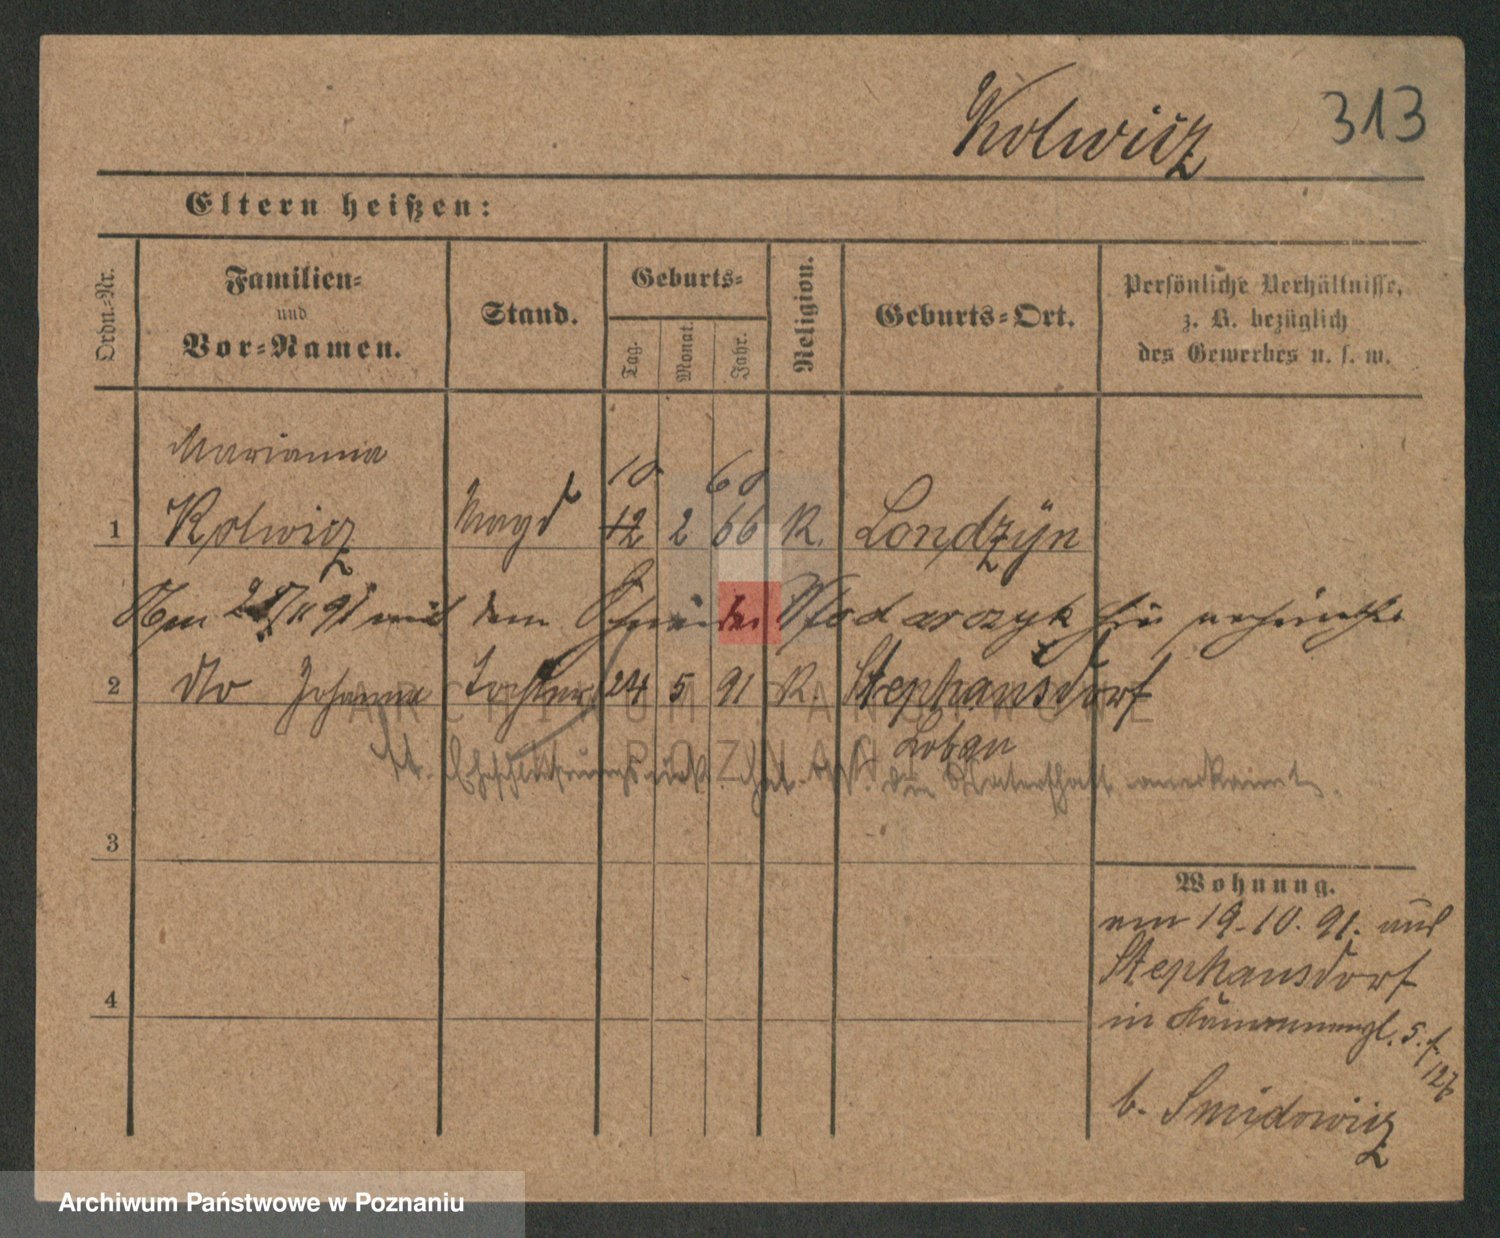 Kolwicz 313
Eltern heißen:
Ordn.-Nr.
Familien-
und
Vor-Namen.
Stand.
Geburts-
Tag.
Monat.
Jahr.
Religion.
Geburts-Ort.
Persönliche Verhältnisse,
z. B. bezüglich
des Gewerbes u. s. w.
Marianna 10 60
1 Kolwicz Magd 12 2 66 K. Londzÿn
91 mit dem Schneider Wlodarczyk hier
2 dto Johanna Tochter 24 5 91 K. Stephansdorf
Loban
hat die Vaterschaft anerkannt.
3
Wohnung.
am 19.10.91. aus
Stephansdorf
4
in 5. f.
127
b. Smidowicz
ARCHIWUM PAŃSTWOWE
POZNAŃ
Archiwum Państwowe w Poznaniu